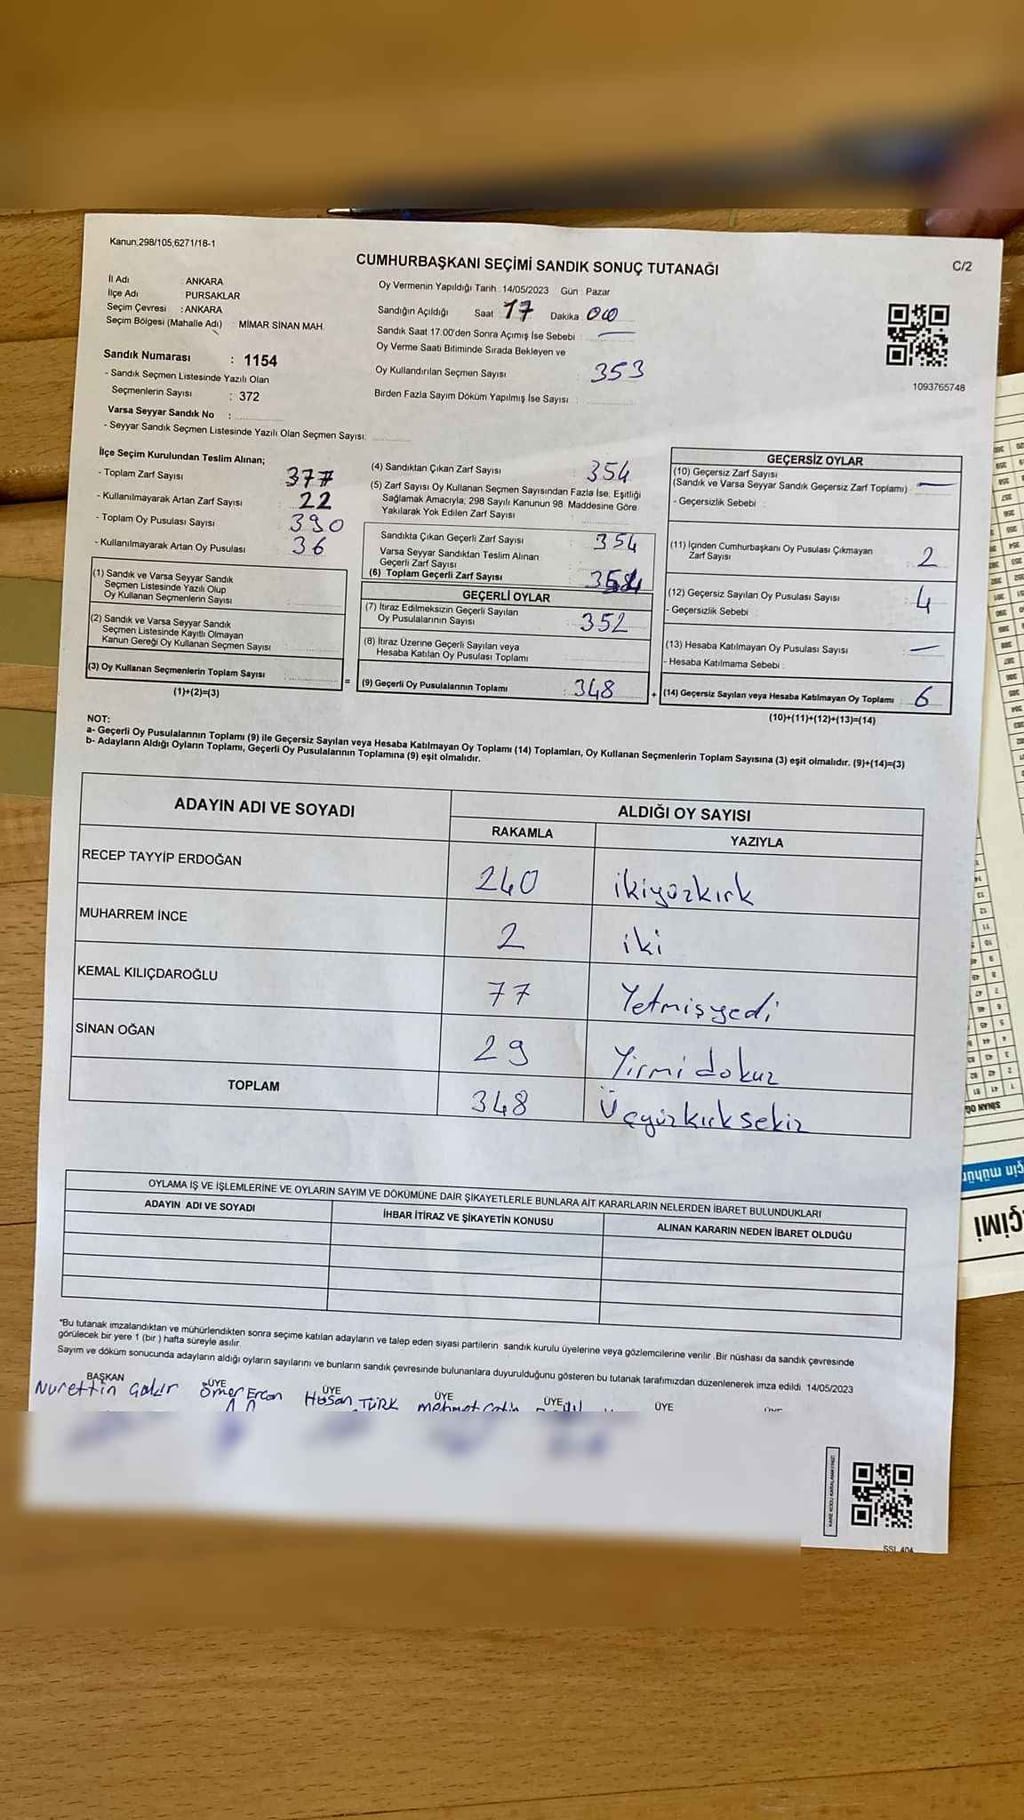 Kanun:298/105,6271/18-1
CUMHURBAŞKANI SEÇİMİ SANDIK SONUÇ TUTANAĞI
C/2
İl Adı : ANKARA
İlçe Adı : PURSAKLAR
Seçim Çevresi : ANKARA
Seçim Bölgesi (Mahalle Adı) : MİMAR SİNAN MAH.
Sandık Numarası : 1154
- Sandık Seçmen Listesinde Yazılı Olan
Seçmenlerin Sayısı : 372
Varsa Seyyar Sandık No :
- Seyyar Sandık Seçmen Listesinde Yazılı Olan Seçmen Sayısı:
Oy Vermenin Yapıldığı Tarih : 14/05/2023 Gün : Pazar
Sandığın Açıldığı Saat 17 Dakika 00
Sandık Saat 17.00'den Sonra Açımış İse Sebebi : —
Oy Verme Saati Bitiminde Sırada Bekleyen ve
Oy Kullandırılan Seçmen Sayısı : 353
Birden Fazla Sayım Döküm Yapılmış İse Sayısı :
1093765748
İlçe Seçim Kurulundan Teslim Alınan;
- Toplam Zarf Sayısı : 377
- Kullanılmayarak Artan Zarf Sayısı : 22
- Toplam Oy Pusulası Sayısı : 390
- Kullanılmayarak Artan Oy Pusulası : 36
(1) Sandık ve Varsa Seyyar Sandık
Seçmen Listesinde Yazılı Olup
Oy Kullanan Seçmenlerin Sayısı :
(2) Sandık ve Varsa Seyyar Sandık
Seçmen Listesinde Kayıtlı Olmayan
Kanun Gereği Oy Kullanan Seçmen Sayısı :
(3) Oy Kullanan Seçmenlerin Toplam Sayısı :
(1)+(2)=(3)
=
(4) Sandıktan Çıkan Zarf Sayısı : 354
(5) Zarf Sayısı Oy Kullanan Seçmen Sayısından Fazla İse, Eşitliği
Sağlamak Amacıyla, 298 Sayılı Kanunun 98. Maddesine Göre
Yakılarak Yok Edilen Zarf Sayısı :
Sandıkta Çıkan Geçerli Zarf Sayısı : 354
Varsa Seyyar Sandıktan Teslim Alınan
Geçerli Zarf Sayısı :
(6) Toplam Geçerli Zarf Sayısı :
GEÇERLİ OYLAR
(7) İtiraz Edilmeksizin Geçerli Sayılan
Oy Pusulalarının Sayısı : 352
(8) İtiraz Üzerine Geçerli Sayılan veya
Hesaba Katılan Oy Pusulası Toplamı :
(9) Geçerli Oy Pusulalarının Toplamı : 348
+
GEÇERSİZ OYLAR
(10) Geçersiz Zarf Sayısı
(Sandık ve Varsa Seyyar Sandık Geçersiz Zarf Toplamı) : —
- Geçersizlik Sebebi :
(11) İçinden Cumhurbaşkanı Oy Pusulası Çıkmayan
Zarf Sayısı : 2
(12) Geçersiz Sayılan Oy Pusulası Sayısı : 4
- Geçersizlik Sebebi :
(13) Hesaba Katılmayan Oy Pusulası Sayısı : —
- Hesaba Katılmama Sebebi :
(14) Geçersiz Sayılan veya Hesaba Katılmayan Oy Toplamı : 6
(10)+(11)+(12)+(13)=(14)
NOT:
a- Geçerli Oy Pusulalarının Toplamı (9) ile Geçersiz Sayılan veya Hesaba Katılmayan Oy Toplamı (14) Toplamları, Oy Kullanan Seçmenlerin Toplam Sayısına (3) eşit olmalıdır. (9)+(14)=(3)
b- Adayların Aldığı Oyların Toplamı, Geçerli Oy Pusulalarının Toplamına (9) eşit olmalıdır.
ADAYIN ADI VE SOYADI
ALDIĞI OY SAYISI
RAKAMLA YAZIYLA
RECEP TAYYİP ERDOĞAN 240 ikiyüzkırk
MUHARREM İNCE 2 iki
KEMAL KILIÇDAROĞLU 77 Yetmişyedi
SİNAN OĞAN 29 Yirmidokuz
TOPLAM 348 Üçyüzkırksekiz
OYLAMA İŞ VE İŞLEMLERİNE VE OYLARIN SAYIM VE DÖKÜMÜNE DAİR ŞİKAYETLERLE BUNLARA AİT KARARLARIN NELERDEN İBARET BULUNDUKLARI
ADAYIN ADI VE SOYADI İHBAR İTİRAZ VE ŞİKAYETİN KONUSU ALINAN KARARIN NEDEN İBARET OLDUĞU
*Bu tutanak imzalandıktan ve mühürlendikten sonra seçime katılan adayların ve talep eden siyasi partilerin sandık kurulu üyelerine veya gözlemcilerine verilir. Bir nüshası da sandık çevresinde
görülecek bir yere 1 (bir ) hafta süreyle asılır.
Sayım ve döküm sonucunda adayların aldığı oyların sayılarını ve bunların sandık çevresinde bulunanlara duyurulduğunu gösteren bu tutanak tarafımızdan düzenlenerek imza edildi. 14/05/2023
BAŞKAN ÜYE ÜYE ÜYE ÜYE ÜYE
Nurettin Ömer Ercan Hasan TÜRK Mehmet
KARE KODU KARALAMAYINIZ!
SİNAN
için mühür
ÇİMİ